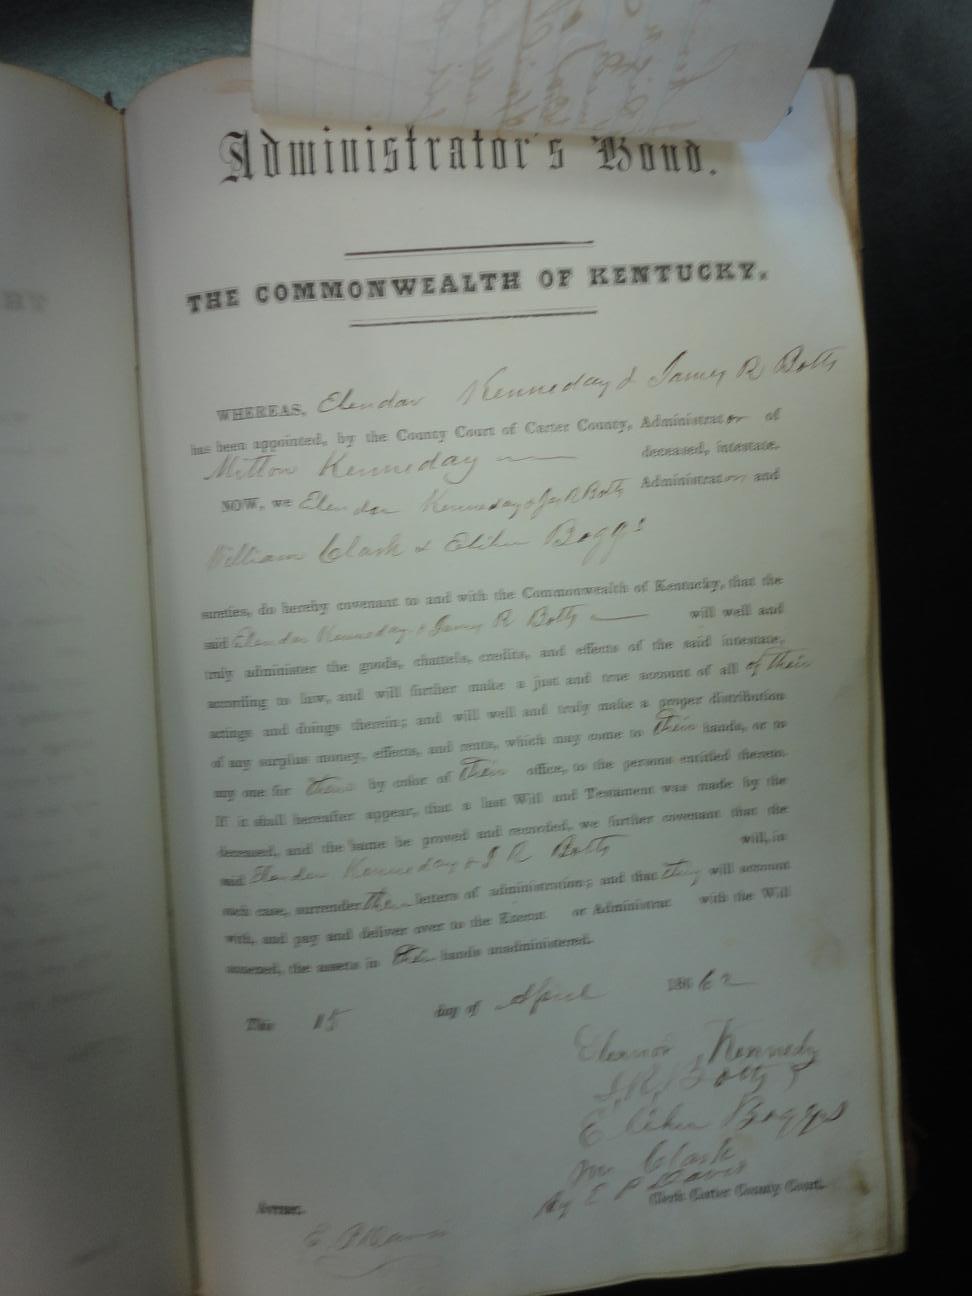 Administrator's Bond.
THE COMMONWEALTH OF KENTUCKY.
WHEREAS, Elendar Kenneday & James R Botts
has been appointed, by the County Court of Carter County, Administrator of
Milton Kenneday deceased, intestate.
NOW, we Elendar Kenneday & Jas R Botts Administrator and
William Clark & Elihu Boggs
sureties, do hereby covenant to and with the Commonwealth of Kentucky, that the
said Elendar Kenneday & James R Botts will well and
truly administer the goods, chattels, credits, and effects of the said intestate,
according to law, and will further make a just and true account of all of their
actings and doings therein; and will well and truly make a proper distribution
of any surplus money, effects, and rents, which may come to their hands, or to
any one for them by color of their office, to the persons entitled thereto.
If it shall hereafter appear, that a last Will and Testament was made by the
deceased, and the same be proved and recorded, we further covenant that the
said Elendar Kenneday & J R Botts will, in
such case, surrender their letters of administration; and that they will account
with, and pay and deliver over to the Execut or Administrat with the Will
annexed, the assets in their hands unadministered.
This 15 day of April 1862
Eleanor Kennedy
J. R. Botts
Elihu Boggs
Wm Clark
By E P Davis
Clerk Carter County Court.
Attest.
E P Davis